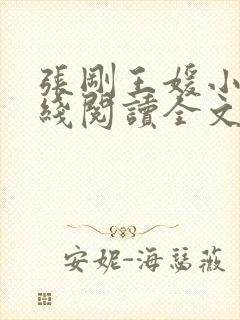 張剛王媛小
綫閱讀全文
安妮-海瑟薇